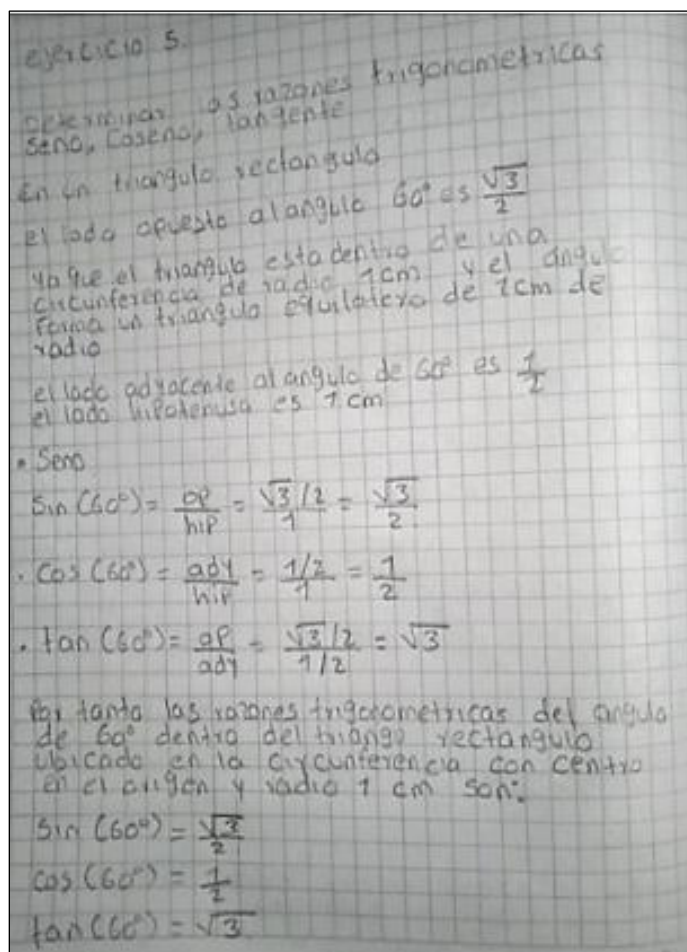 ejercicio 5.
Determinar las razones trigonometricas
seno, coseno, tangente
En un triangulo rectangulo
el lado opuesto al angulo 60° es √3/2
ya que el triangulo esta dentro de una
circunferencia de radio 1cm y el angulo
forma un triangulo equilatero de 1cm de
radio
el lado adyacente al angulo de 60° es 1/2
el lado hipotenusa es 1 cm
• Seno
Sin (60°) = op/hip = √3/2/1 = √3/2
• Cos (60°) = ady/hip = 1/2/1 = 1/2
• tan (60°) = op/ady = √3/2/1/2 = √3
Por tanto las razones trigonometricas del angulo
de 60° dentro del triango rectangulo
ubicado en la circunferencia con centro
en el origen y radio 1 cm son:
Sin (60°) = √3/2
cos (60°) = 1/2
tan (60°) = √3